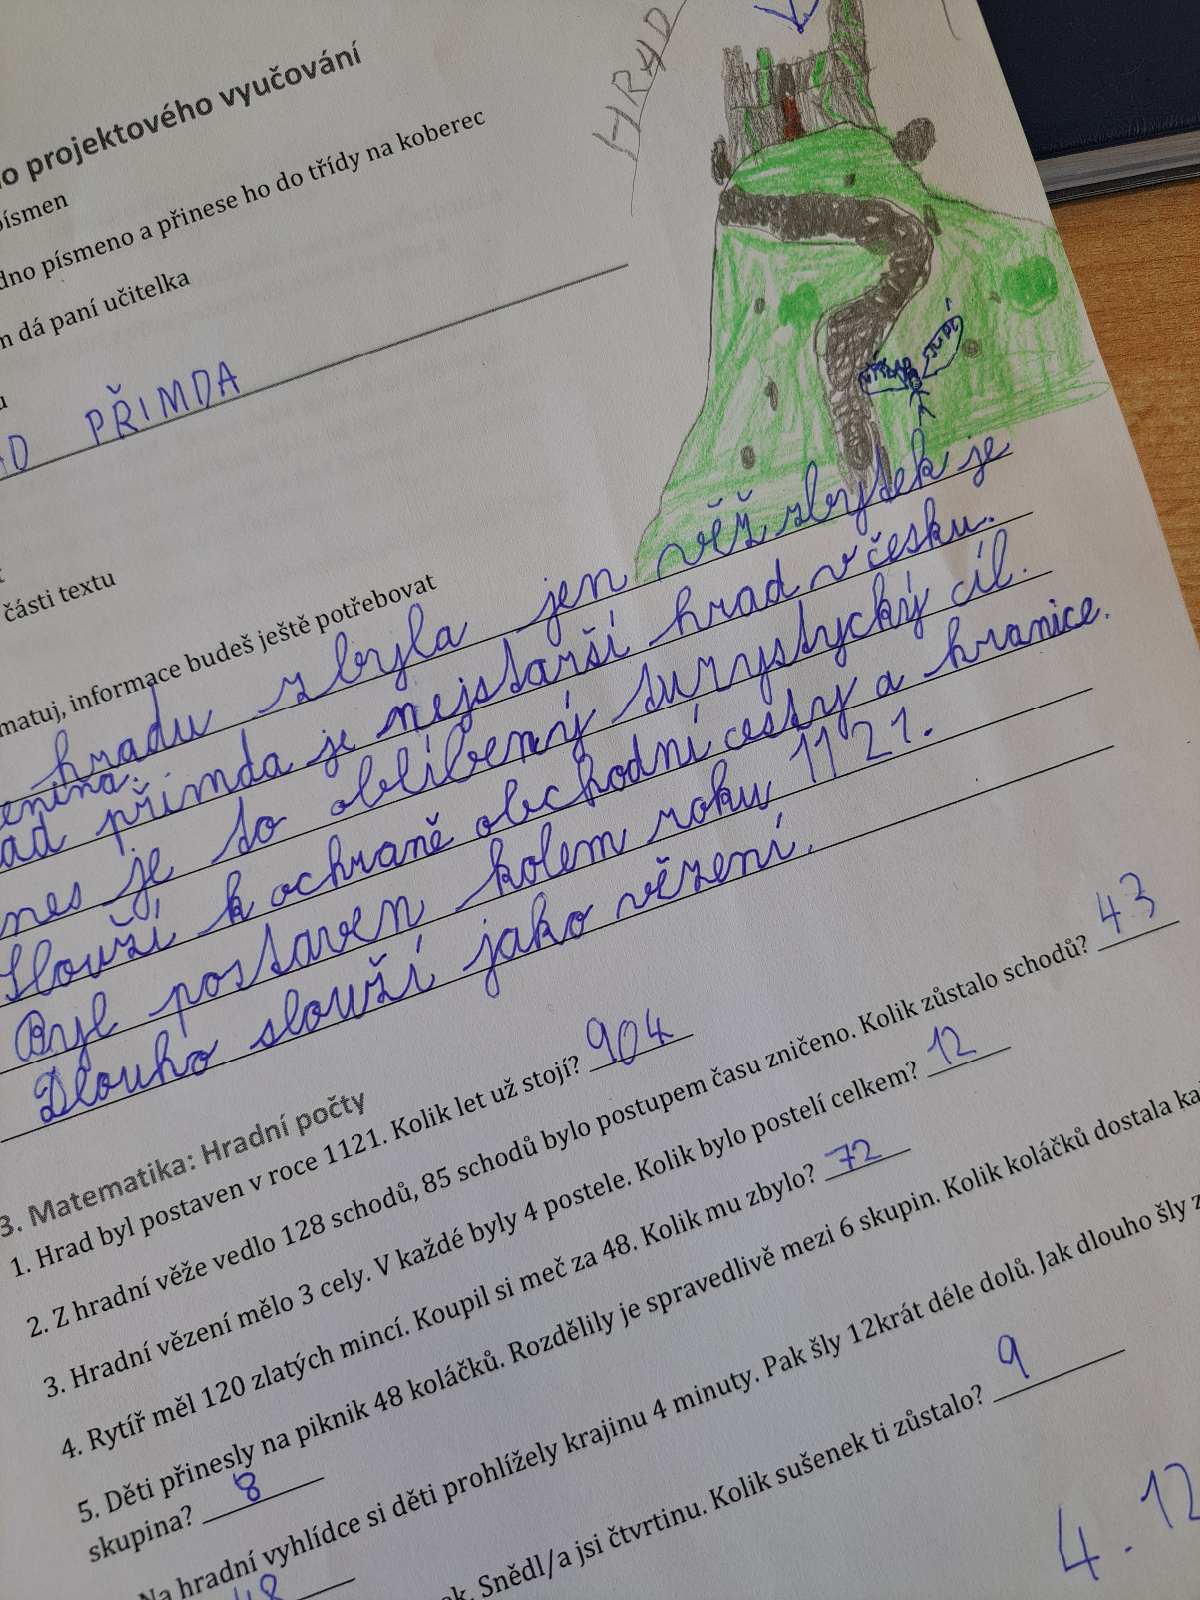 projektového vyučování
písmen
dno písmeno a přinese ho do třídy na koberec
dá paní učitelka
HRAD
PŘIMDA
části textu
matuj, informace budeš ještě potřebovat
hradu zbyla jen věž zbytek je
přimda je nejstarší hrad v česku.
je to oblíbený turystycký cíl.
Slouží k ochraně obchodní cesty a hranice.
Byl postaven kolem roku 1121.
Dlouho slouží jako vězení.
3. Matematika: Hradní počty
1. Hrad byl postaven v roce 1121. Kolik let už stojí? 904
2. Z hradní věže vedlo 128 schodů, 85 schodů bylo postupem času zničeno. Kolik zůstalo schodů? 43
3. Hradní vězení mělo 3 cely. V každé byly 4 postele. Kolik bylo postelí celkem? 12
4. Rytíř měl 120 zlatých mincí. Koupil si meč za 48. Kolik mu zbylo? 72
5. Děti přinesly na piknik 48 koláčků. Rozdělily je spravedlivě mezi 6 skupin. Kolik koláčků dostala
skupina? 8
Na hradní vyhlídce si děti prohlížely krajinu 4 minuty. Pak šly 12krát déle dolů. Jak dlouho šly
48
Snědl/a jsi čtvrtinu. Kolik sušenek ti zůstalo? 9
4.12